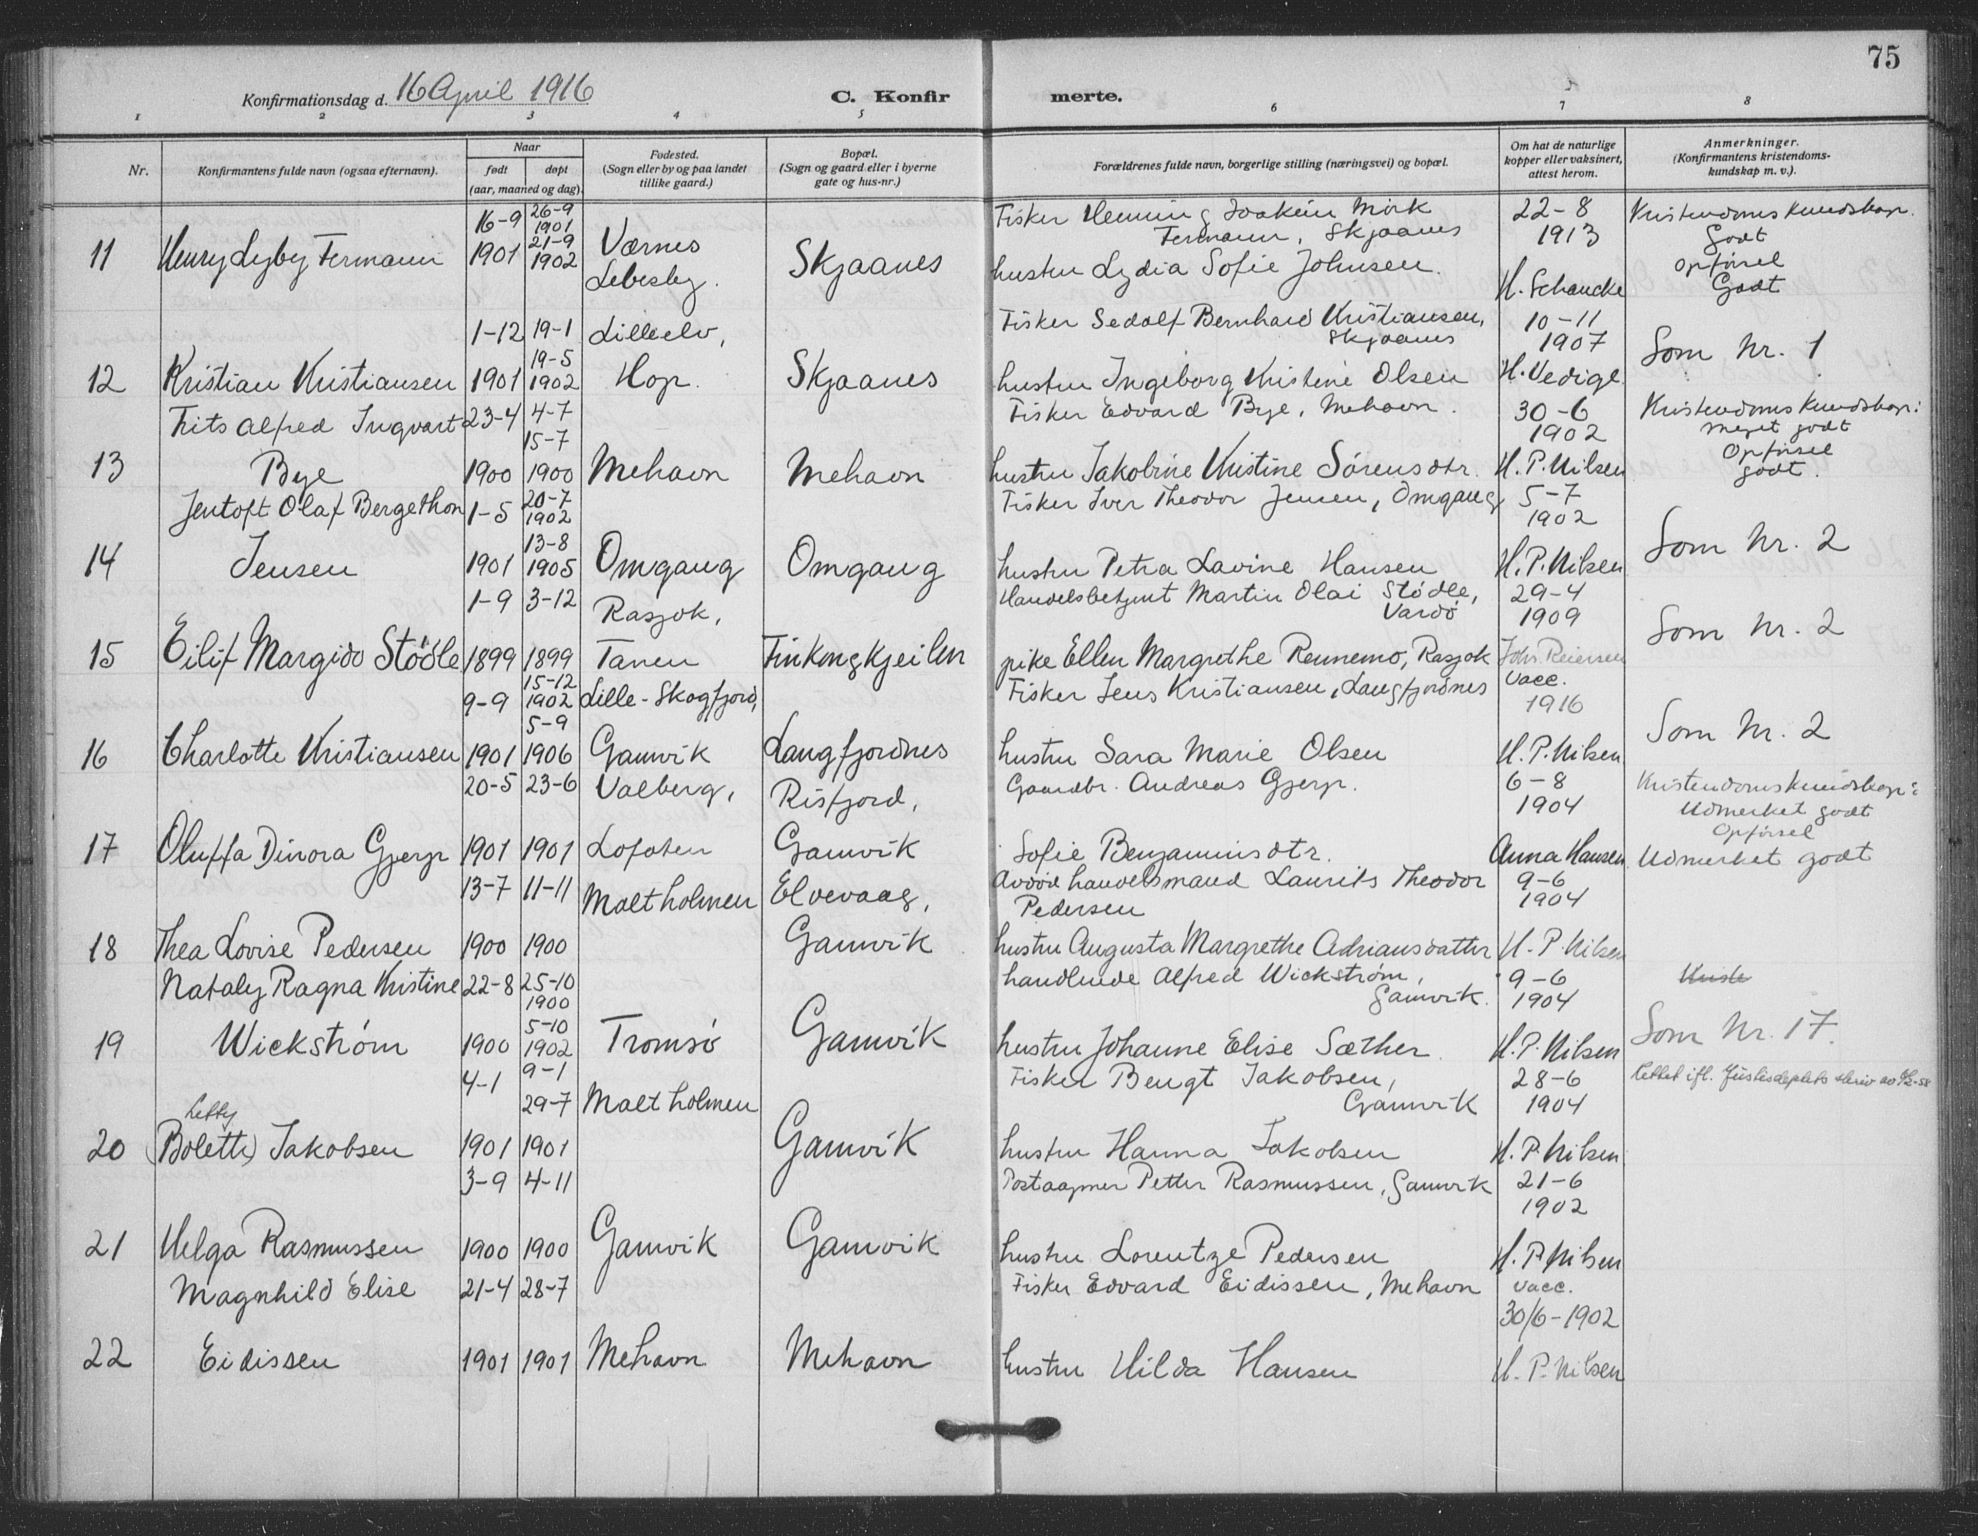 75
Konfirmationsdag d. 16 April 1916
C. Konfir
merte.
1 2 3 4 5 6 7 8
Nr.
Konfirmantens fulde navn (ogsaa efternavn).
Naar
født
døpt
(aar, maaned og dag).
Fødested.
(Sogn eller by og paa landet
tillike gaard.)
Bopæl.
(Sogn og gaard eller i byerne
gate og hus-nr.)
Forældrenes fulde navn, borgerlige stilling (næringsvei) og bopæl.
Om hat de naturlige
kopper eller vaksinert,
attest herom.
Anmerkninger.
(Konfirmantens kristendoms-
kundskap m. v.).
11
Henry Lyby Fermann
16-9
1901
26-9
1901
21-9
1902
Værnes
Lebesby.
Skjaanes
Fisker Henning Joakim Mørk
Fermann, Skjaanes
hustru Lydia Sofie Johnsen.
22-8
1913
H. Schancke
Kristendoms kundskap.
Godt
Opførsel
Godt
12
Kristian Kristiansen
1-12
1901
19-1
19-5
1902
Lilleelv,
Hop.
Skjaanes
Fisker Sedolf Bernhard Kristiansen,
Skjaanes
hustru Ingeborg Kristine Olsen
10-11
1907
H. Vedige
Som Nr. 1
13
Frits Alfred Ingvart
Bye
23-4
1900
4-7
15-7
1900
Mehavn
Mehavn
Fisker Edvard Bye, Mehavn.
hustru Jakobine Kristine Sørensdtr.
30-6
1902
H. P. Nilsen
Kristendoms kundskap:
meget godt
Opførsel
godt.
14
Jentoft Olaf Bergethon
Jensen
1-5
1901
20-7
1902
13-8
1905
Omgang
Omgang
Fisker Iver Theodor Jensen, Omgang
hustru Petra Lavine Hansen
5-7
1902
H. P. Nilsen
Som Nr. 2
15
Eilif Margido Stödle
1-9
1899
3-12
1899
Rasjok,
Tanen
Finkongkjeilen
Handelsbetjent Martin Olai Stødle,
Vardö
pike Ellen Margrethe Rennemo, Rasjok
29-4
1909
Johs. Reiersen
Som Nr. 2
16
Charlotte Kristiansen
9-9
1901
15-12
1902
5-9
1906
Lille-Skogfjord,
Gamvik
Langfjordnes
Fisker Jens Kristiansen, Langfjordnes
hustru Sara Marie Olsen
vacc.
1916
H. P. Nilsen
Som Nr. 2
17
Oluffa Dinora Gjerp
20-5
1901
23-6
1901
Valberg,
Lofoten
Risfjord,
Gamvik
Gaardbr. Andreas Gjerp.
Sofie Benjaminsdtr.
6-8
1904
Anna Hansen
Kristendomskundskap:
Udmerket godt
Opførsel
Udmerket godt
18
Thea Lovise Pedersen
13-7
1900
11-11
1900
Maltholmen
Elvevaag,
Gamvik
Avdød handelsmand Laurits Theodor
Pedersen
hustru Augusta Margrethe Adriansdatter
9-6
1904
H. P. Nilsen
19
Nataly Ragna Kristine
Wickstrøm
22-8
1900
25-10
1900
5-10
1902
Tromsø
Gamvik
handlende Alfred Wickstrøm,
Gamvik.
hustru Johanne Elise Sæther.
9-6
1904
H. P. Nilsen
Som Nr. 17.
20
Letty
(Bolette) Jakobsen
4-1
1901
9-1
29-7
1901
Maltholmen
Gamvik
Fisker Bengt Jakobsen,
Gamvik
hustru Hanna Jakobsen
28-6
1904
H. P. Nilsen
Rettet ifl. Justisdeptets skriv av
21
Helga Rasmussen
3-9
1900
4-11
1900
Gamvik
Gamvik
Postaapner Petter Rasmussen, Gamvik
hustru Lorentze Pedersen
21-6
1902
H. P. Nilsen
22
Magnhild Elise
Eidissen
21-4
1901
28-7
1901
Mehavn
Mehavn
Fisker Edvard Eidissen, Mehavn
hustru Hilda Hansen
vacc.
30/6-1902
H. P. Nilsen